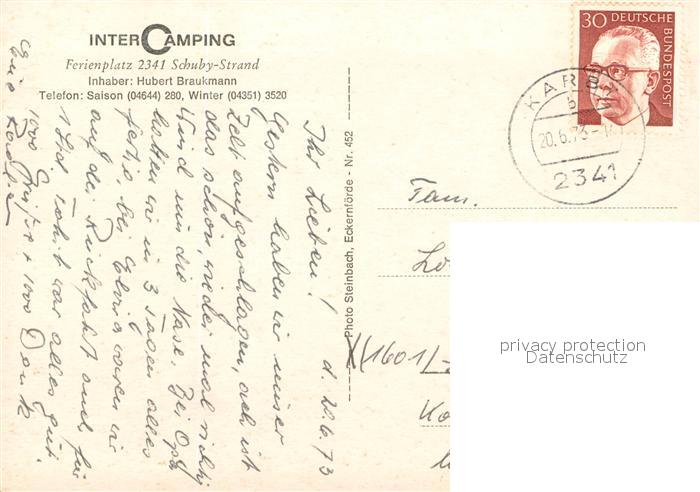 INTERCAMPING
Ferienplatz 2341 Schuby-Strand
Inhaber: Hubert Braukmann
Telefon: Saison (04644) 280, Winter (04351) 3520
d. 20.6.73
Ihr Lieben!
Gestern haben wir unser
Zelt aufgeschlagen, ach ist
das schön, wieder mal richtig
Wind um die Nase. Bei Opa
hatten wir in 3 Tagen alles
fertig, bei waren wir
auf der Rückfahrt und für
1 Std. war alles gut.
1000 Grüße + 1000 Dank
Photo Steinbach, Eckernförde - Nr. 452
30 DEUTSCHE
BUNDESPOST
KARBY
b
20.6.73
2341
Fam.
(1601)
privacy protection
Datenschutz